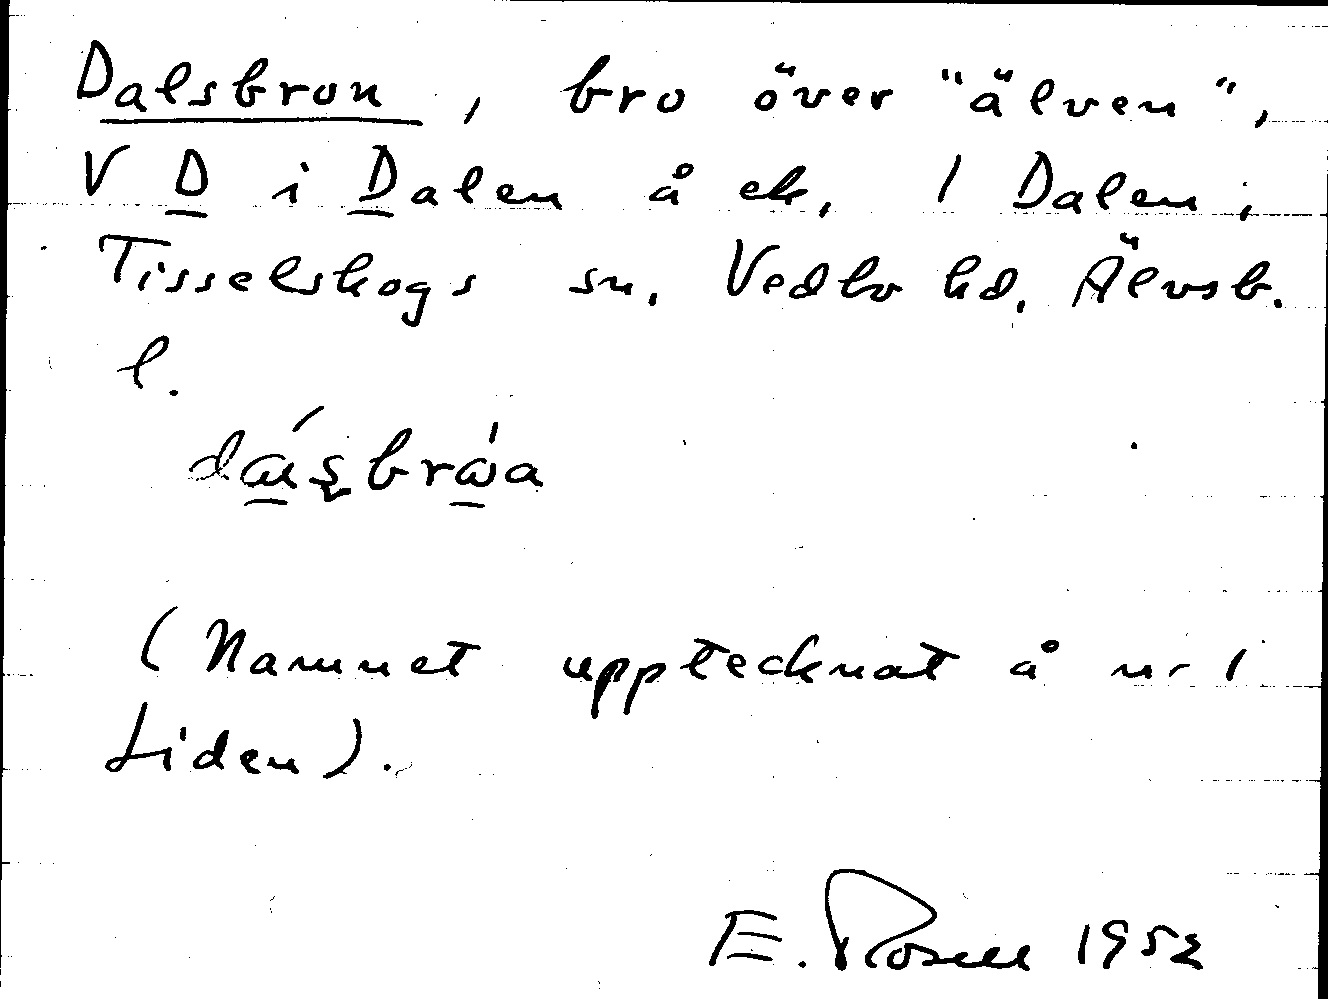 Dalsbron, bro över "älven",
V D i Dalen å ek. 1 Dalen;
Tisselskogs sn. Vedbo hd. Älvsb.
l.
(Namnet upptecknat å nr 1
Liden).
E. Rosell 1952